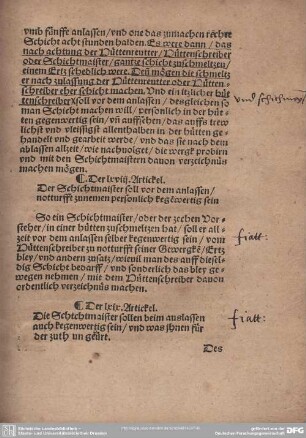 vmb fünffe anlassen/ vnd one das zumachen rechte
Schicht acht stunden halden. Es were dann/ das
nach achtung der Hüttenreuter/ Hüttenschreiber
oder Schichtmaister/ gantze schicht zuschmeltzen/
einem Ertz schedlich were. Den mögen die schmeltz
er nach zulassung der Hüttenreuter oder Hütten⸗
schreiber eher schicht machen. Vnd ein itzlicher hüt
tenschreiber soll vor dem anlassen/ desgleichen so
man Schicht machen will/ persönlich in der hüt
ten gegenwertig sein/ vñ auffsehen/ das auffs trew
lichst vnd vleissigst allenthalben in der hütten ge⸗
handelt vnd gearbeit werde/ vnd das sie nach dem
anlassen allzeit/ wie nachuolget/ die wergk probirn
vnd mit den Schichtmaistern dauon verzeichnüs
machen mögen.
vnd schichtmeyster/
☾ Der lxviij. Artickel.
Der Schichtmaister soll vor dem anlassen/
notturfft zunemen persönlich kegewertig sein
So ein Schichtmaister/ oder der zechen Vor⸗
steher/ in einer hütten zuschmeltzen hat/ soll er all⸗
zeit vor dem anlassen selber kegenwertig sein/ vom
Hüttenschreiber zu notturfft seiner Gewergkē/ Ertz
bley/ vnd andern zusatz/ wieuil man des auff diesel⸗
dig Schicht bedarff/ vnd sonderlich das bley ge⸗
wegen nehmen/ mit dem Hüttenschreiber dauon
ordenlich verzeichnüs machen.
fiatt:
☾ Der lxix. Artickel.
Die Schichtmaister sollen beim auslassen
auch kegenwertig sein/ vnd was jhnen für
der zuth un gebürt.
fiatt:
Des